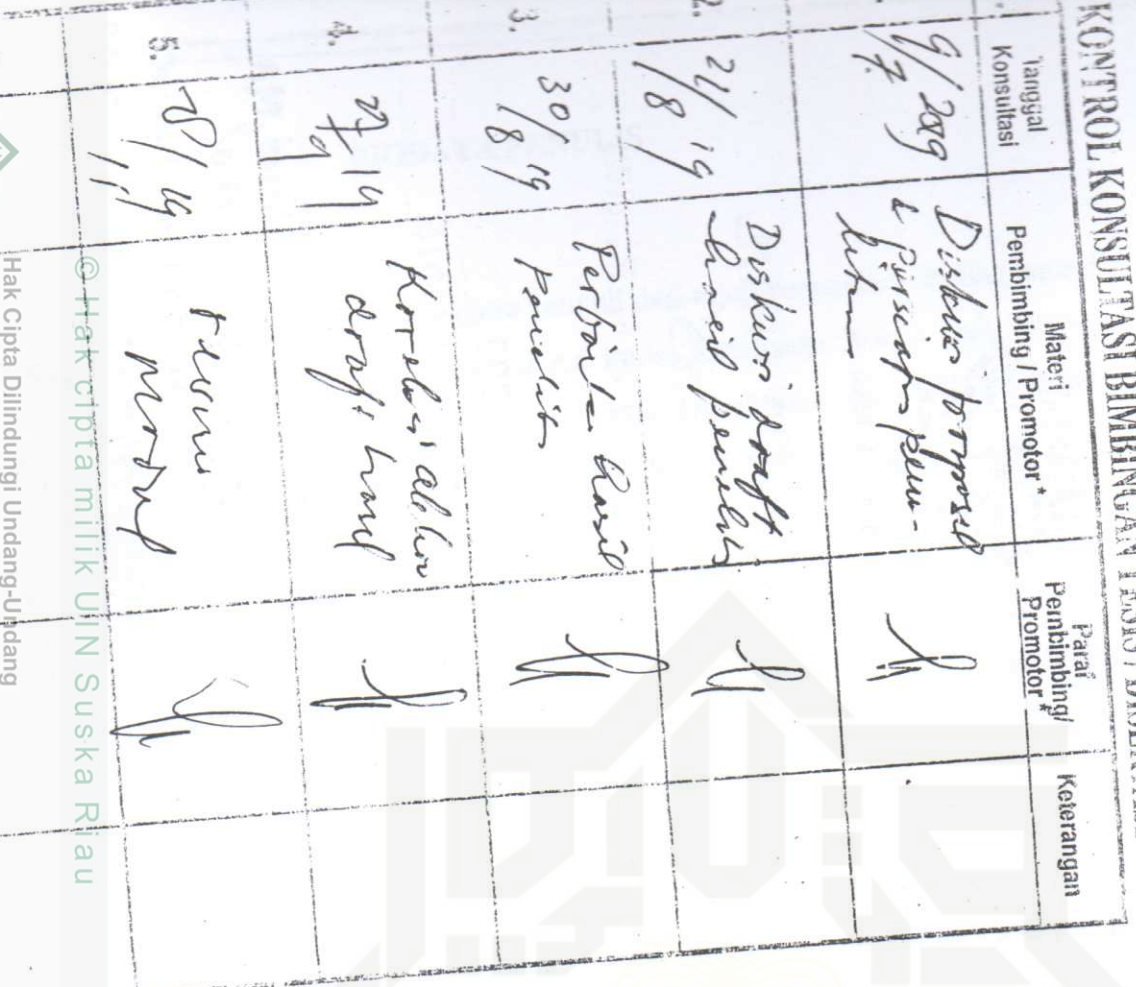 KONTROL KONSULTASI BIMBINGAN TESIS / DISERTASI
Tanggal
Konsultasi
Materi
Pembimbing / Promotor *
Paraf
Pembimbing/
Promotor *
Keterangan
9/ 2019
7
Diskusi proposal
& persiapan pene-
litian
2.
21/ 19
/8
Diskusi draft
hasil penelitian
3.
30/ 19
/8
Perbaiki hasil
penelitian
4.
27/ 19
9
draft hasil
5.
28/ 19
© Hak cipta milik UIN Suska Riau
Hak Cipta Dilindungi Undang-Undang